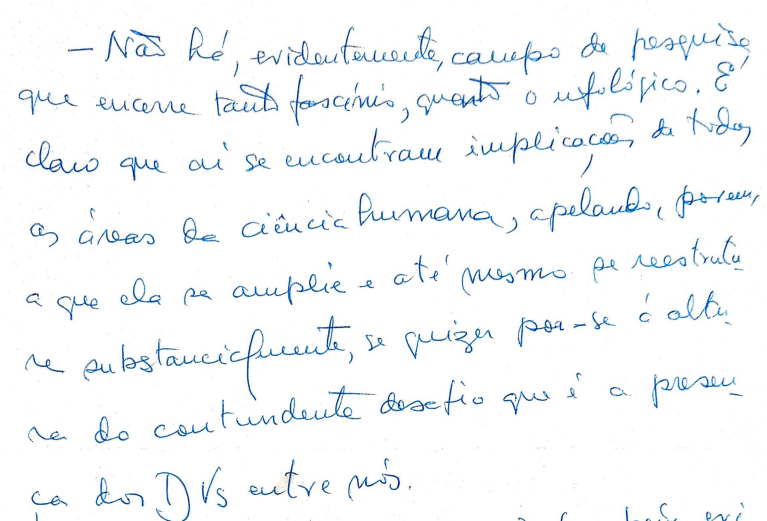 — Não há, evidentemente, campo de pesquisa
que encerre tanto fascínio, quanto o ufológico. É
claro que aí se encontram implicações de todas
as áreas da ciência humana, apelando, porem,
a que ela se amplie e até mesmo se reestrutu
re substancialmente, se quizer por-se à altu
ra do contundente desafio que é a presen
ça dos DVs entre nós.